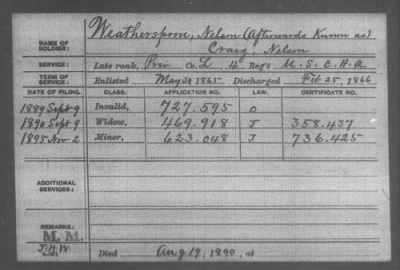 NAME OF SOLDIER: Weatherspoon, Nelson (Afterwards Known as)
Craig, Nelson
SERVICE: Late rank, Priv Co. L, 4 Reg't U.S.C.H.A
TERM OF SERVICE: Enlisted May 1865 Discharged Feb 25, 1866
DATE OF FILING. CLASS. APPLICATION NO. LAW. CERTIFICATE NO.
1889 Sept 9 Invalid, 727.595 O
1890 Sept 9 Widow, 469.918 J 358.437
1895 Nov 2 Minor, 623.048 J 736.425
ADDITIONAL SERVICES:
REMARKS:
M. M.
J.H.W. Died Aug 19, 1890,